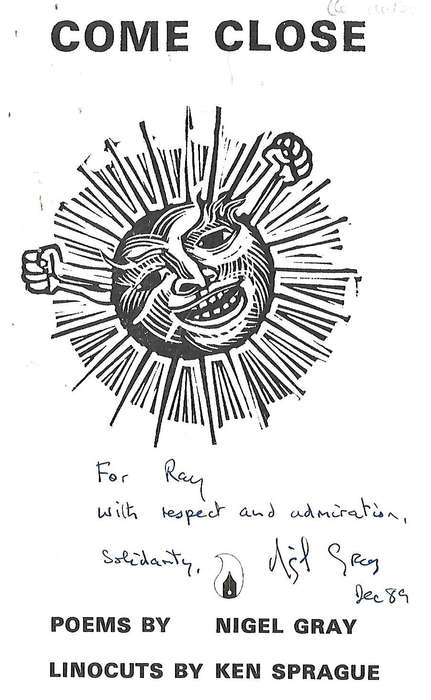 COME CLOSE
For Ray
with respect and admiration,
Solidarity, Nigel Gray
Dec 89
POEMS BY NIGEL GRAY
LINOCUTS BY KEN SPRAGUE